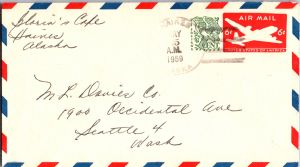 Gloria's Cafe
Haines
Alaska
MAY
5
A.M.
1959
AIR MAIL
6¢ 6¢
UNITED STATES OF AMERICA
M. L. Davies Co.
1900 Occidental Ave
Seattle 4
Wash